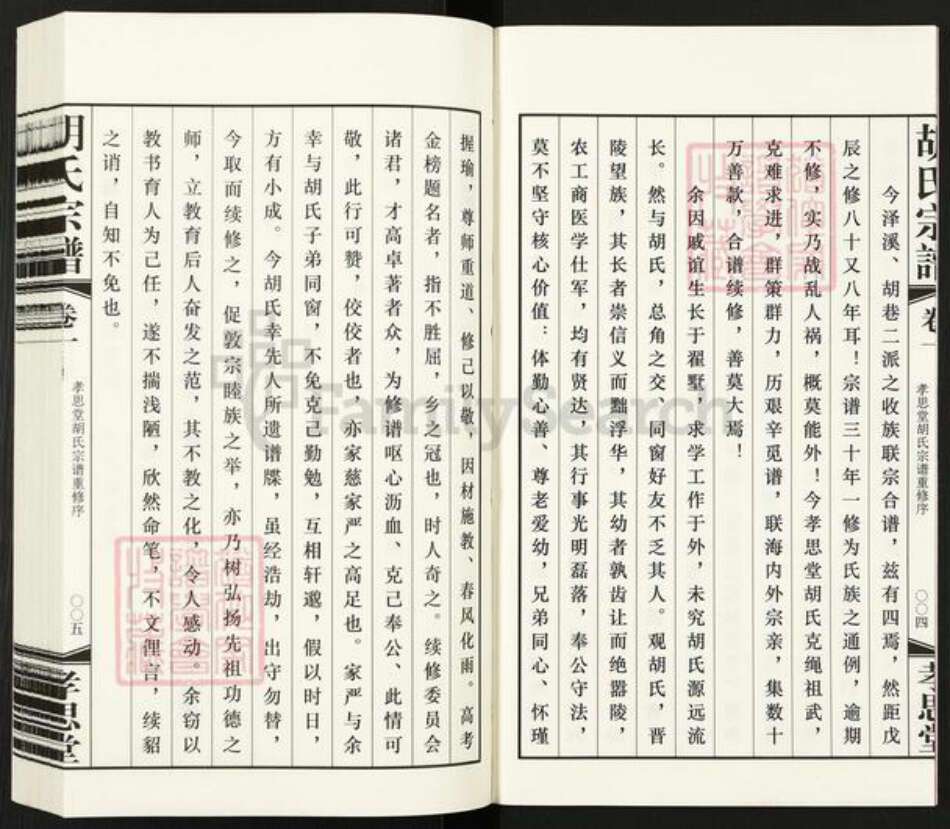 胡氏宗谱
卷一
孝思堂胡氏宗谱重修序
〇〇四
孝思堂
今泽溪、胡巷二派之收族联宗合谱，兹有四焉，然距戊
辰之修八十又八年耳！宗谱三十年一修为氏族之通例，逾期
不修，实乃战乱人祸，概莫能外！今孝思堂胡氏克绳祖武，
克难求进，群策群力，历艰辛觅谱，联海内外宗亲，集数十
万善款，合谱续修，善莫大焉！
余因戚谊生长于翟墅，求学工作于外，未究胡氏源远流
长。然与胡氏，总角之交、同窗好友不乏其人。观胡氏，晋
陵望族，其长者崇信义而黜浮华，其幼者孰齿让而绝嚣陵，
农工商医学仕军，均有贤达，其行事光明磊落，奉公守法，
莫不坚守核心价值：体勤心善、尊老爱幼，兄弟同心、怀瑾
握瑜，尊师重道、修己以敬，因材施教、春风化雨。高考
金榜题名者，指不胜屈，乡之冠也，时人奇之。续修委员会
诸君，才高卓著者众，为修谱呕心沥血、克己奉公、此情可
敬，此行可赞，佼佼者也，亦家慈家严之高足也。家严与余
幸与胡氏子弟同窗，不免克己勤勉，互相轩邈，假以时日，
方有小成。今胡氏幸先人所遗谱牒，虽经浩劫，出守勿替，
今取而续修之，促敦宗睦族之举，亦乃树弘扬先祖功德之
师，立教育后人奋发之范，其不教之化，令人感动。余窃以
教书育人为己任，遂不揣浅陋，欣然命笔，不文俚言，续貂
之诮，自知不免也。
胡氏宗谱
卷一
孝思堂胡氏宗谱重修序
〇〇五
孝思堂
FamilySearch